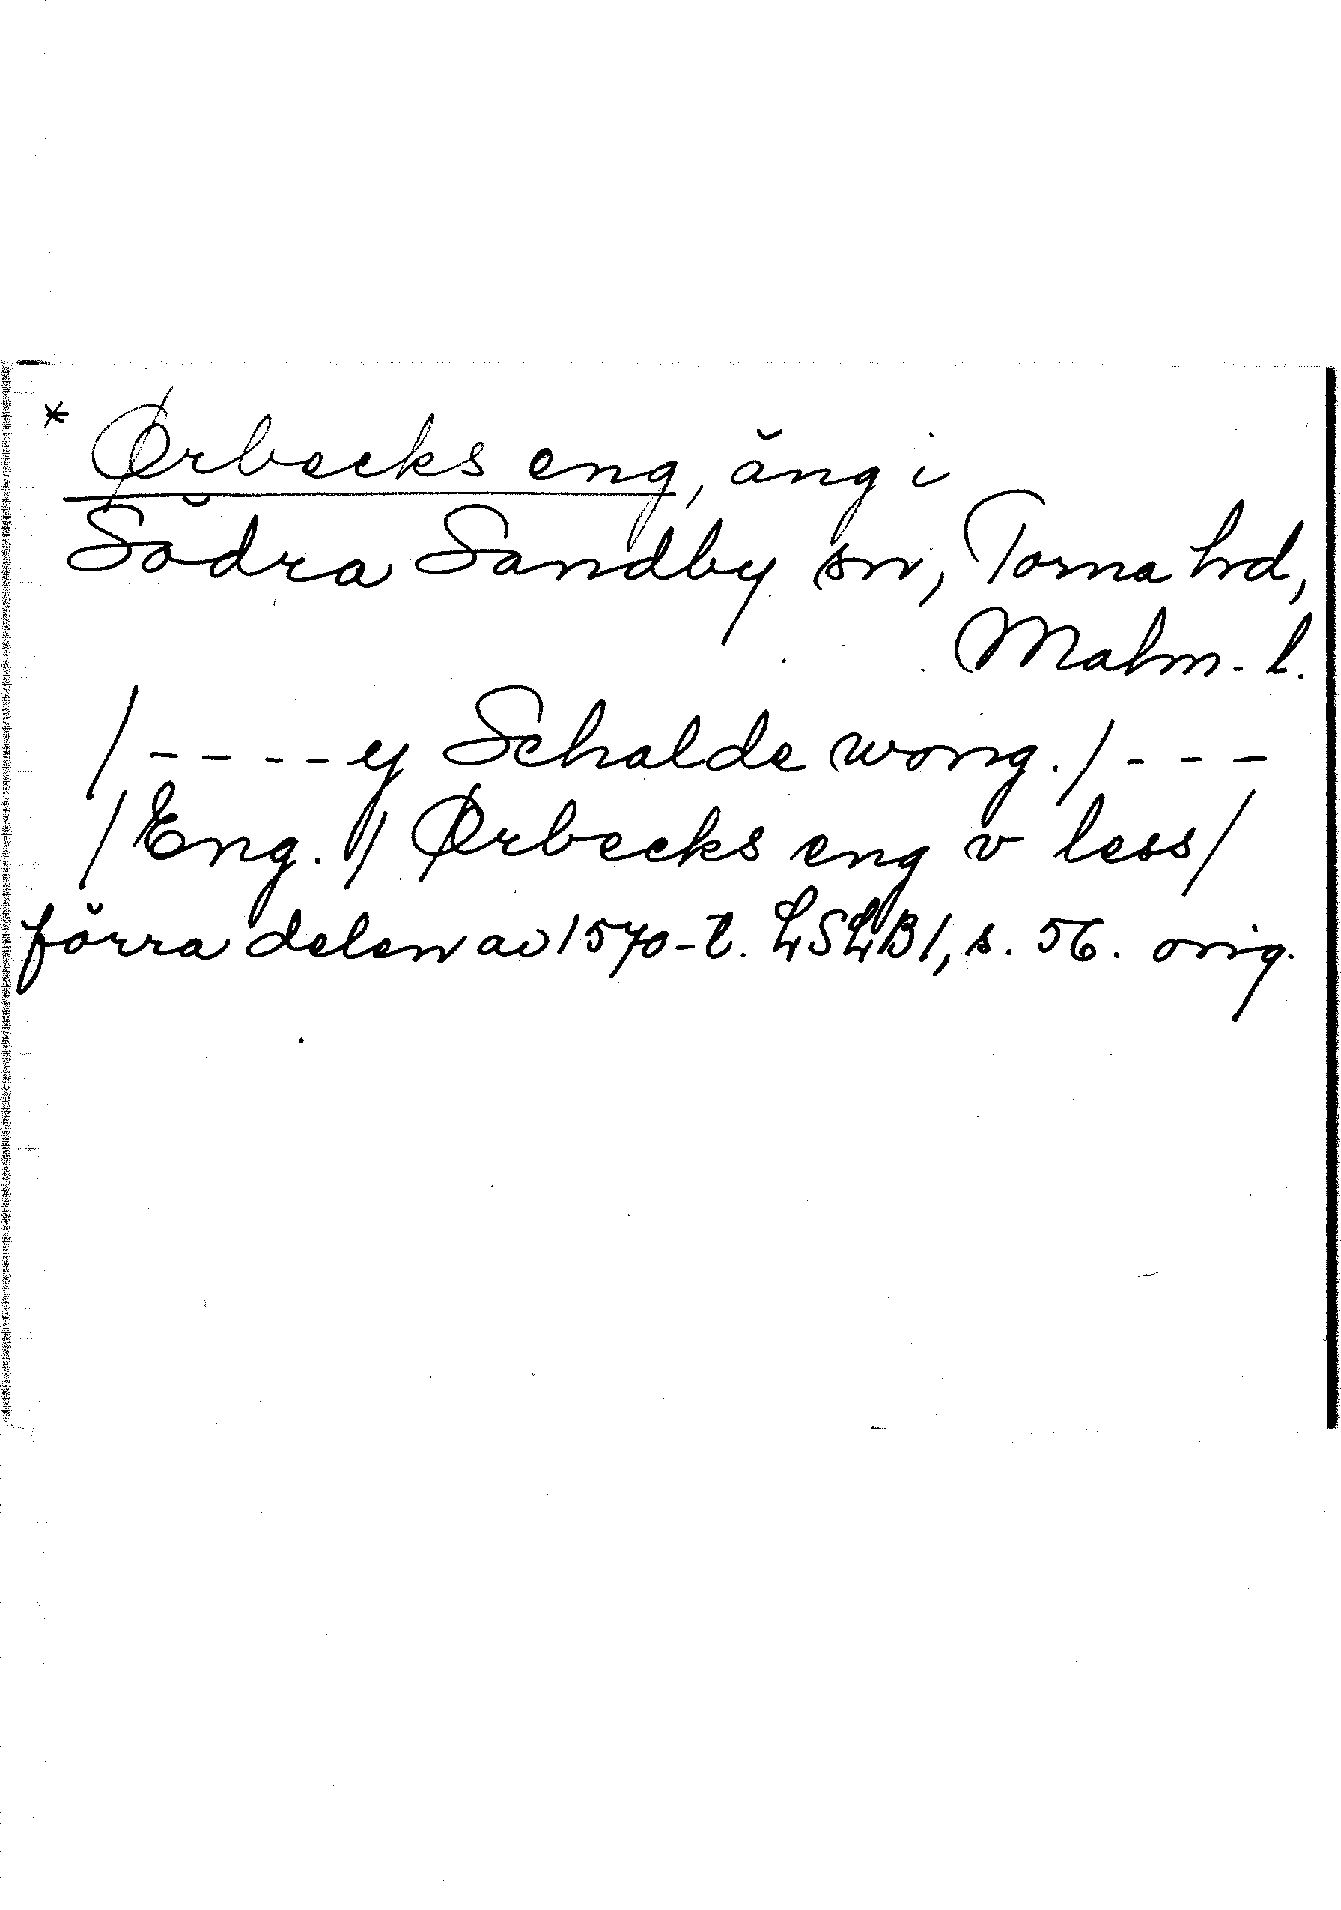 * Ørbecks eng, äng i
Södra Sandby sn, Torna hd,
Malm-l.
/----ij Schalde wong./---
/Eng.// Ørbecks eng v less/
förra delen av 1570-t. LSLB 1, s. 56. orig.